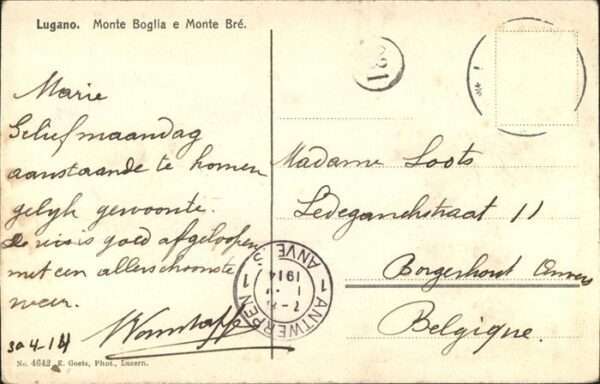 Lugano. Monte Boglia e Monte Bré.
Marie
Gelief maandag
aanstaande te komen
gelijk gewoonte.
De reis is goed afgeloopen
met een allerschoonste
weer.
30 4-14
No. 4642 E. Goetz, Phot., Luzern.
221
Madame Loots
Ledeganckstraat 11
Borgerhout Anvers
Belgique.
1 ANTWERPEN 1
ANVE
1914